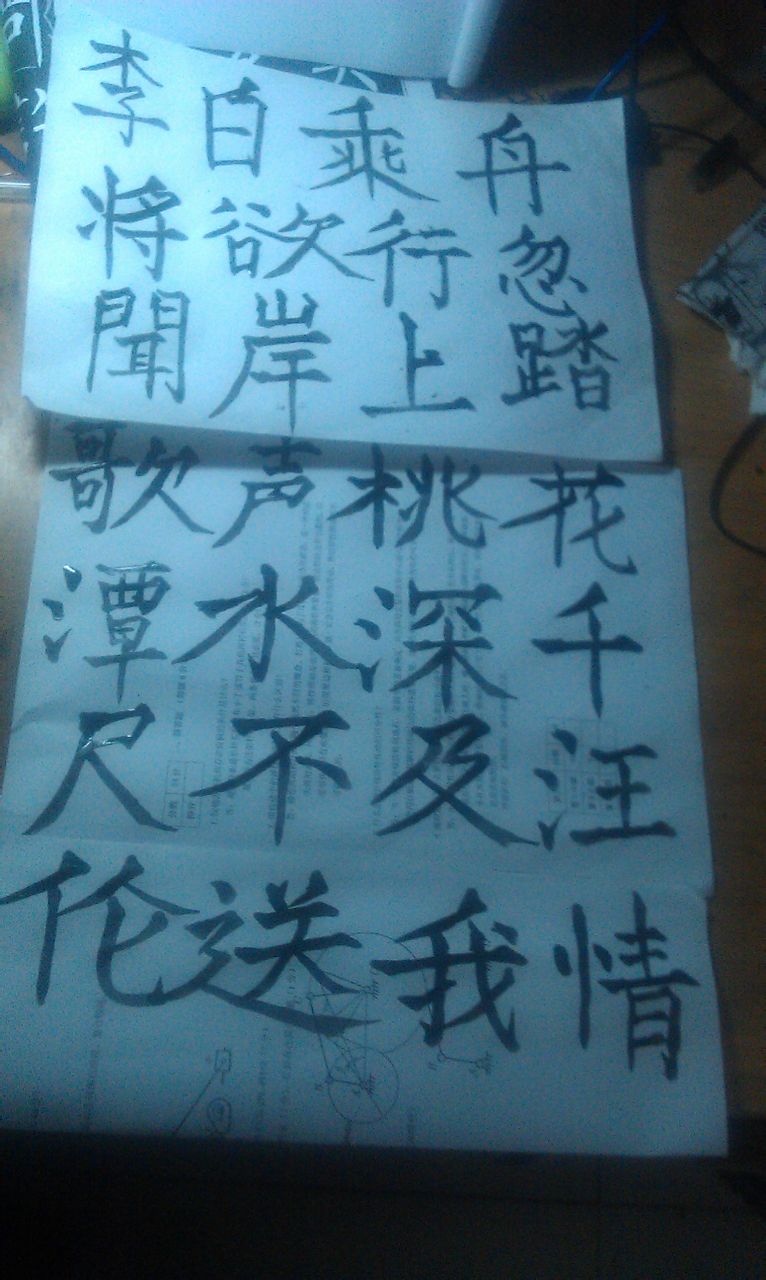 李白乘舟
将欲行忽
聞岸上踏
歌声桃花
潭水深千
尺不及汪
伦送我情